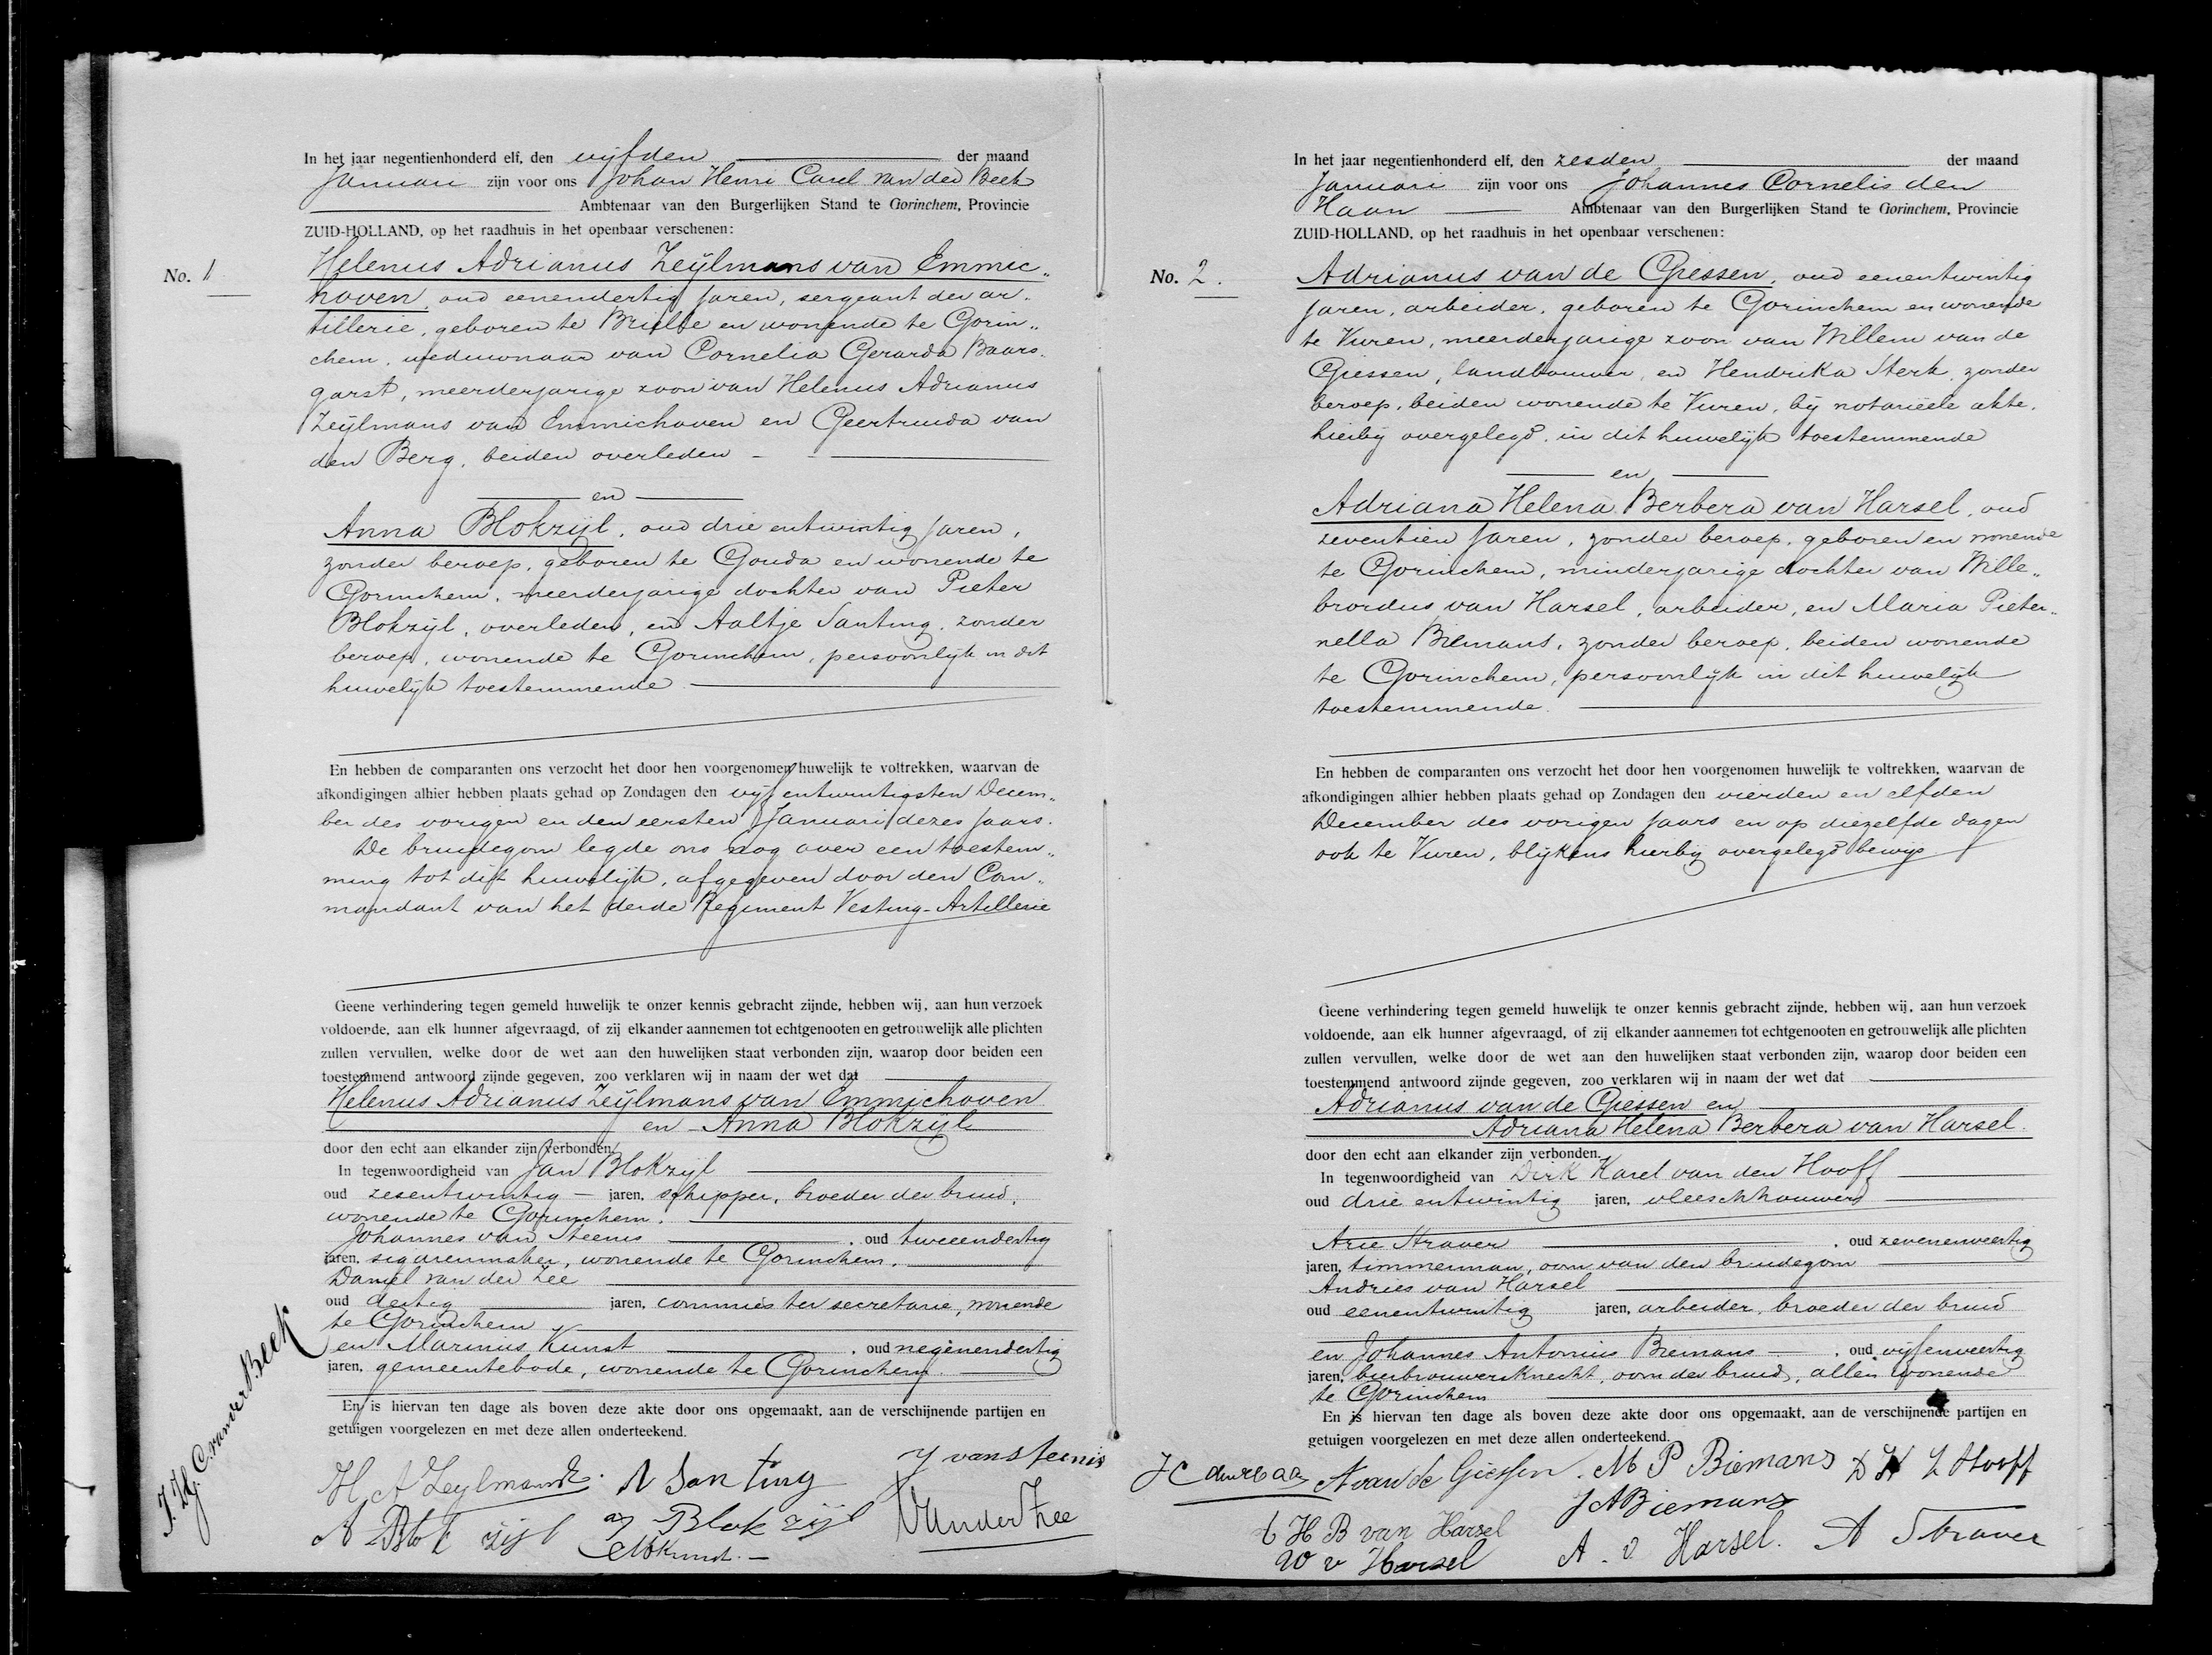 In het jaar negentienhonderd elf, den vijfden der maand
Januari zijn voor ons Johan Henri Carel van der Beek
Ambtenaar van den Burgerlijken Stand te Gorinchem, Provincie
ZUID-HOLLAND, op het raadhuis in het openbaar verschenen:
No. 1
Helenus Adrianus Zeijlmans van Emmic„
hoven, oud eenendertig jaren, sergeant der ar„
tillerie, geboren te Brielle en wonende te Gorin„
chem, weduwnaar van Cornelia Gerarda Baars„
garst, meerderjarige zoon van Helenus Adrianus
Zeijlmans van Emmichoven en Geertruida van
den Berg, beiden overleden
en
Anna Blokzijl, oud drie entwintig jaren,
zonder beroep, geboren te Gouda en wonende te
Gorinchem, meerderjarige dochter van Pieter
Blokzijl, overleden, en Aaltje Santing, zonder
beroep, wonende te Gorinchem, persoonlijk in dit
huwelijk toestemmende
En hebben de comparanten ons verzocht het door hen voorgenomen huwelijk te voltrekken, waarvan de
afkondigingen alhier hebben plaats gehad op Zondagen den vijf entwintigsten Decem„
ber des vorigen en den eersten Januari dezes jaars.
De bruidegom legde ons nog over een toestem„
ming tot dit huwelijk, afgegeven door den Com„
mandant van het derde Regiment Vesting-Artillerie
Geene verhindering tegen gemeld huwelijk te onzer kennis gebracht zijnde, hebben wij, aan hun verzoek
voldoende, aan elk hunner afgevraagd, of zij elkander aannemen tot echtgenooten en getrouwelijk alle plichten
zullen vervullen, welke door de wet aan den huwelijken staat verbonden zijn, waarop door beiden een
toestemmend antwoord zijnde gegeven, zoo verklaren wij in naam der wet dat
Helenus Adrianus Zeijlmans van Emmichoven
en Anna Blokzijl
door den echt aan elkander zijn verbonden.
In tegenwoordigheid van Jan Blokzijl
oud zesentwintig jaren, schipper, broeder der bruid,
wonende te Gorinchem.
Johannes van Steenis, oud tweeendertig
jaren, sigarenmaker, wonende te Gorinchem.
Daniel van der Zee
oud dertig jaren, commies ter secretarie, wonende
te Gorinchem
en Marinus Kunst, oud negenendertig
jaren, gemeentebode, wonende te Gorinchem.
En is hiervan ten dage als boven deze akte door ons opgemaakt, aan de verschijnende partijen en
getuigen voorgelezen en met deze allen onderteekend.
J. H. C. van der Beek
H. A Zeylmans. A San ting J van Steenis
A Blok zijl J Blok zijl Van der Zee
M Kunst.
In het jaar negentienhonderd elf, den zesden der maand
Januari zijn voor ons Johannes Cornelis den
Haan Ambtenaar van den Burgerlijken Stand te Gorinchem, Provincie
ZUID-HOLLAND, op het raadhuis in het openbaar verschenen:
No. 2.
Adrianus van de Giessen, oud eenentwintig
jaren, arbeider, geboren te Gorinchem en wonende
te Vuren, meerderjarige zoon van Willem van de
Giessen, landbouwer, en Hendrika Sterk, zonder
beroep, beiden wonende te Vuren, bij notarieele akte,
hierbij overgelegd, in dit huwelijk toestemmende
en
Adriana Helena Berbera van Harsel, oud
zeventien jaren, zonder beroep, geboren en wonende
te Gorinchem, minderjarige dochter van Wille„
brordus van Harsel, arbeider, en Maria Pieter„
nella Biemans, zonder beroep, beiden wonende
te Gorinchem, persoonlijk in dit huwelijk
toestemmende.
En hebben de comparanten ons verzocht het door hen voorgenomen huwelijk te voltrekken, waarvan de
afkondigingen alhier hebben plaats gehad op Zondagen den vierden en elfden
December des vorigen jaars en op diezelfde dagen
ook te Vuren, blijkens hierbij overgelegd bewijs.
Geene verhindering tegen gemeld huwelijk te onzer kennis gebracht zijnde, hebben wij, aan hun verzoek
voldoende, aan elk hunner afgevraagd, of zij elkander aannemen tot echtgenooten en getrouwelijk alle plichten
zullen vervullen, welke door de wet aan den huwelijken staat verbonden zijn, waarop door beiden een
toestemmend antwoord zijnde gegeven, zoo verklaren wij in naam der wet dat
Adrianus van de Giessen en
Adriana Helena Berbera van Harsel.
door den echt aan elkander zijn verbonden.
In tegenwoordigheid van Dirk Karel van den Hooff
oud drie entwintig jaren, vleeschhouwer
Arie Straver, oud zevenenveertig
jaren, timmerman, oom van den bruidegom
Andries van Harsel
oud eenentwintig jaren, arbeider, broeder der bruid
en Johannes Antonius Biemans, oud vijfenveertig
jaren, bierbrouwersknecht, oom der bruid, allen wonende
te Gorinchem
En is hiervan ten dage als boven deze akte door ons opgemaakt, aan de verschijnende partijen en
getuigen voorgelezen en met deze allen onderteekend.
JC den Haan A van de Giessen. M P Biemans D K Hooff
J A Biemans
H B van Harsel
W v Harsel A. v Harsel. A Straver